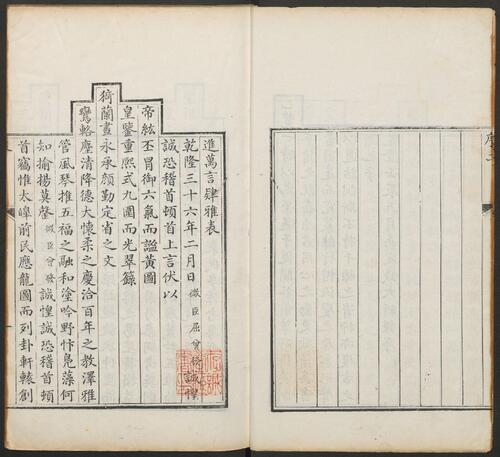 進萬言肆雅表
乾隆三十六年二月日微臣屈曾發誠惶
誠恐稽首頓首上言伏以
帝紘丕冒御六氣而謐黃圖
皇鑒重熙式九圍而光翠籙
猗蘭晝永承顏勤定省之文
鸞輅塵清降德大懷柔之慶洽百年之教澤雅
管風琴推五福之融和塗吟野忭凫藻何
知揄揚莫罄微臣曾發誠惶誠恐稽首頓
首竊惟太皥前民應龍圖而列卦軒轅創